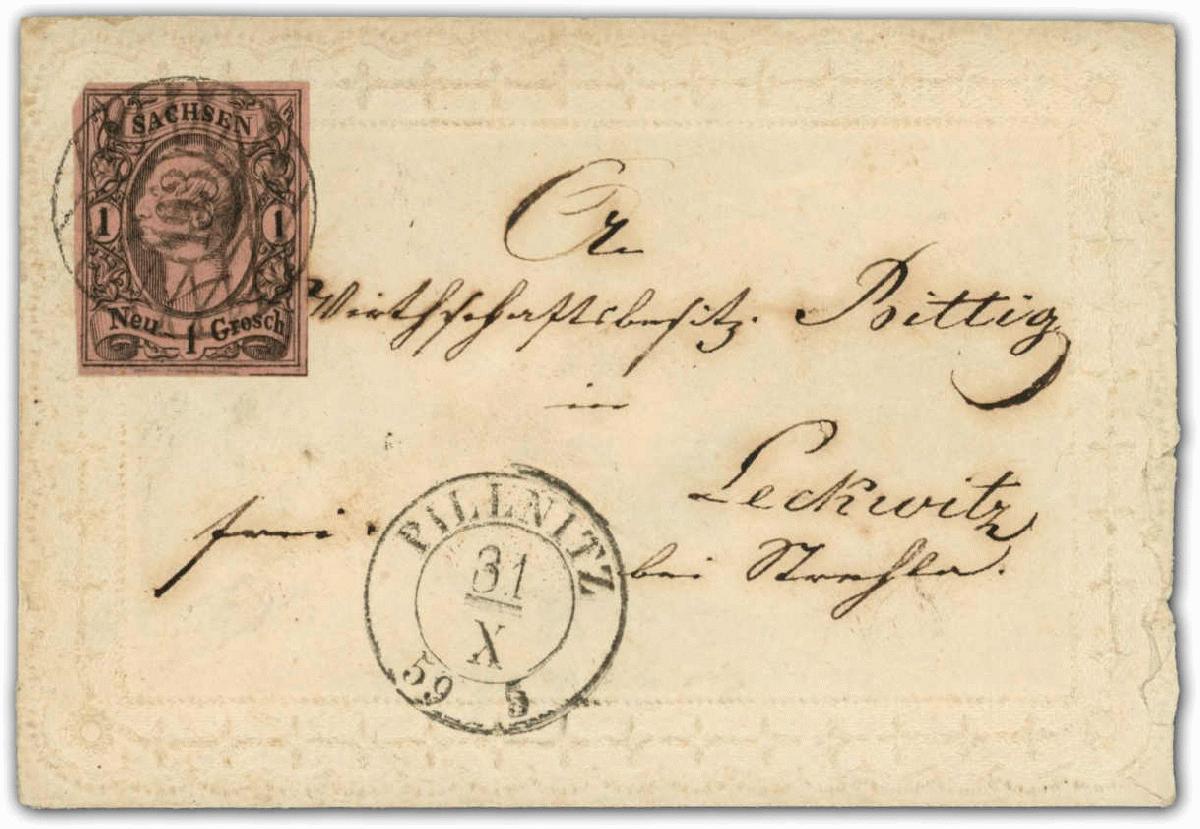 SACHSEN
1 1
Neu 1 Grosch
An
Wirthschaftsbesitz. Bittig
in
Leckwitz
frei. bei Strehla.
PILLNITZ
31
X
59 5